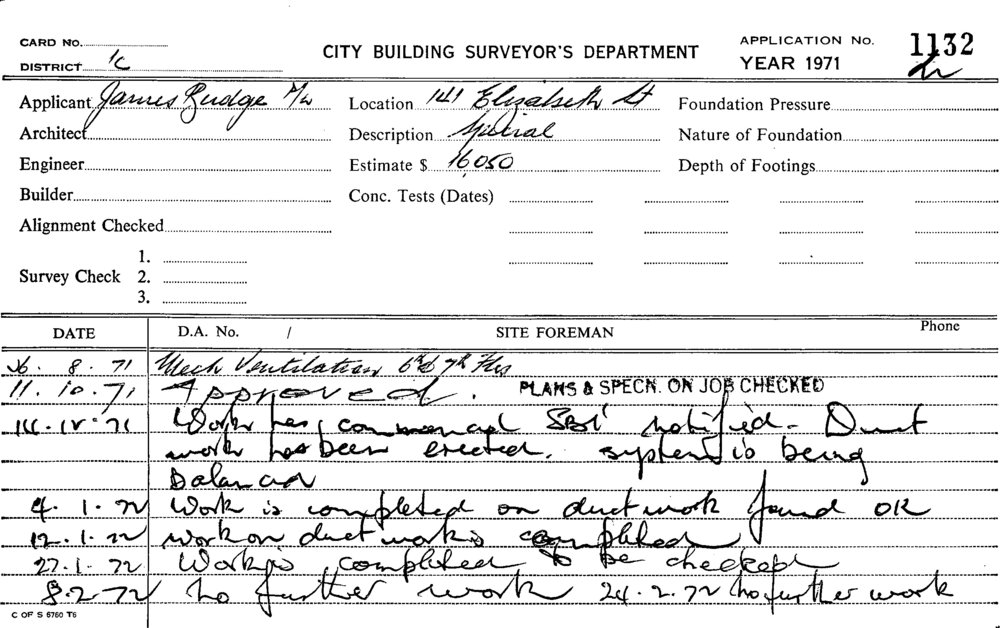 CARD No.
DISTRICT 1C
CITY BUILDING SURVEYOR'S DEPARTMENT
APPLICATION No. 1132
YEAR 1971
Applicant James Rudge P/L Location 141 Elizabeth St Foundation Pressure
Architect Description Special Nature of Foundation
Engineer Estimate $ 16050 Depth of Footings
Builder Conc. Tests (Dates)
Alignment Checked
Survey Check 1.
2.
3.
DATE D.A. No. / SITE FOREMAN Phone
26. 8. 71 Mech Ventilation 6th & 7th Flrs
11. 10. 71 Approved. PLANS & SPECN. ON JOB CHECKED
14. 12. 71 Work has commenced SBI notified - Duct
work has been erected. system is being
Balanced
4. 1. 72 Work is completed on duct work found OK
12. 1. 72 work on duct work is completed
27. 1. 72 Work is completed to be checked
8. 2. 72 no further work 24. 2. 72 no further work
C OF S 6760 T6